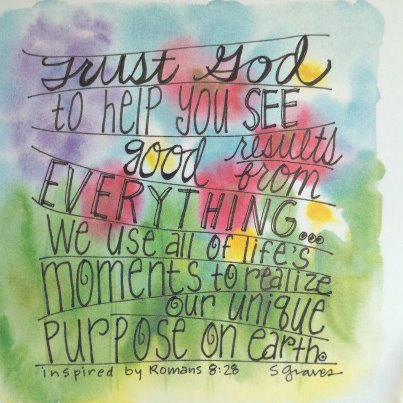 Trust God
to help you SEE
good results
from
EVERYTHING...
We use all of life's
moments to realize
our unique
purpose on earth.
inspired by Romans 8:28 S Graves